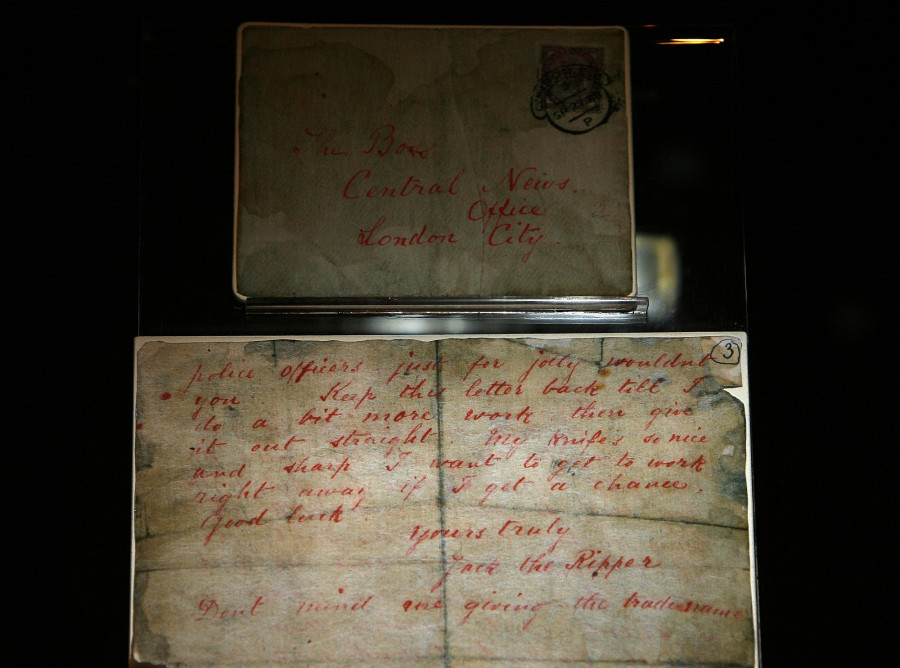 The Boss
Central News
Office
London City
3
police officers just for jolly wouldnt
you Keep this letter back till I
do a bit more work then give
it out straight My knife's so nice
and sharp I want to get to work
right away if I get a chance.
Good luck.
Yours truly
Jack the Ripper
Dont mind me giving the trade name